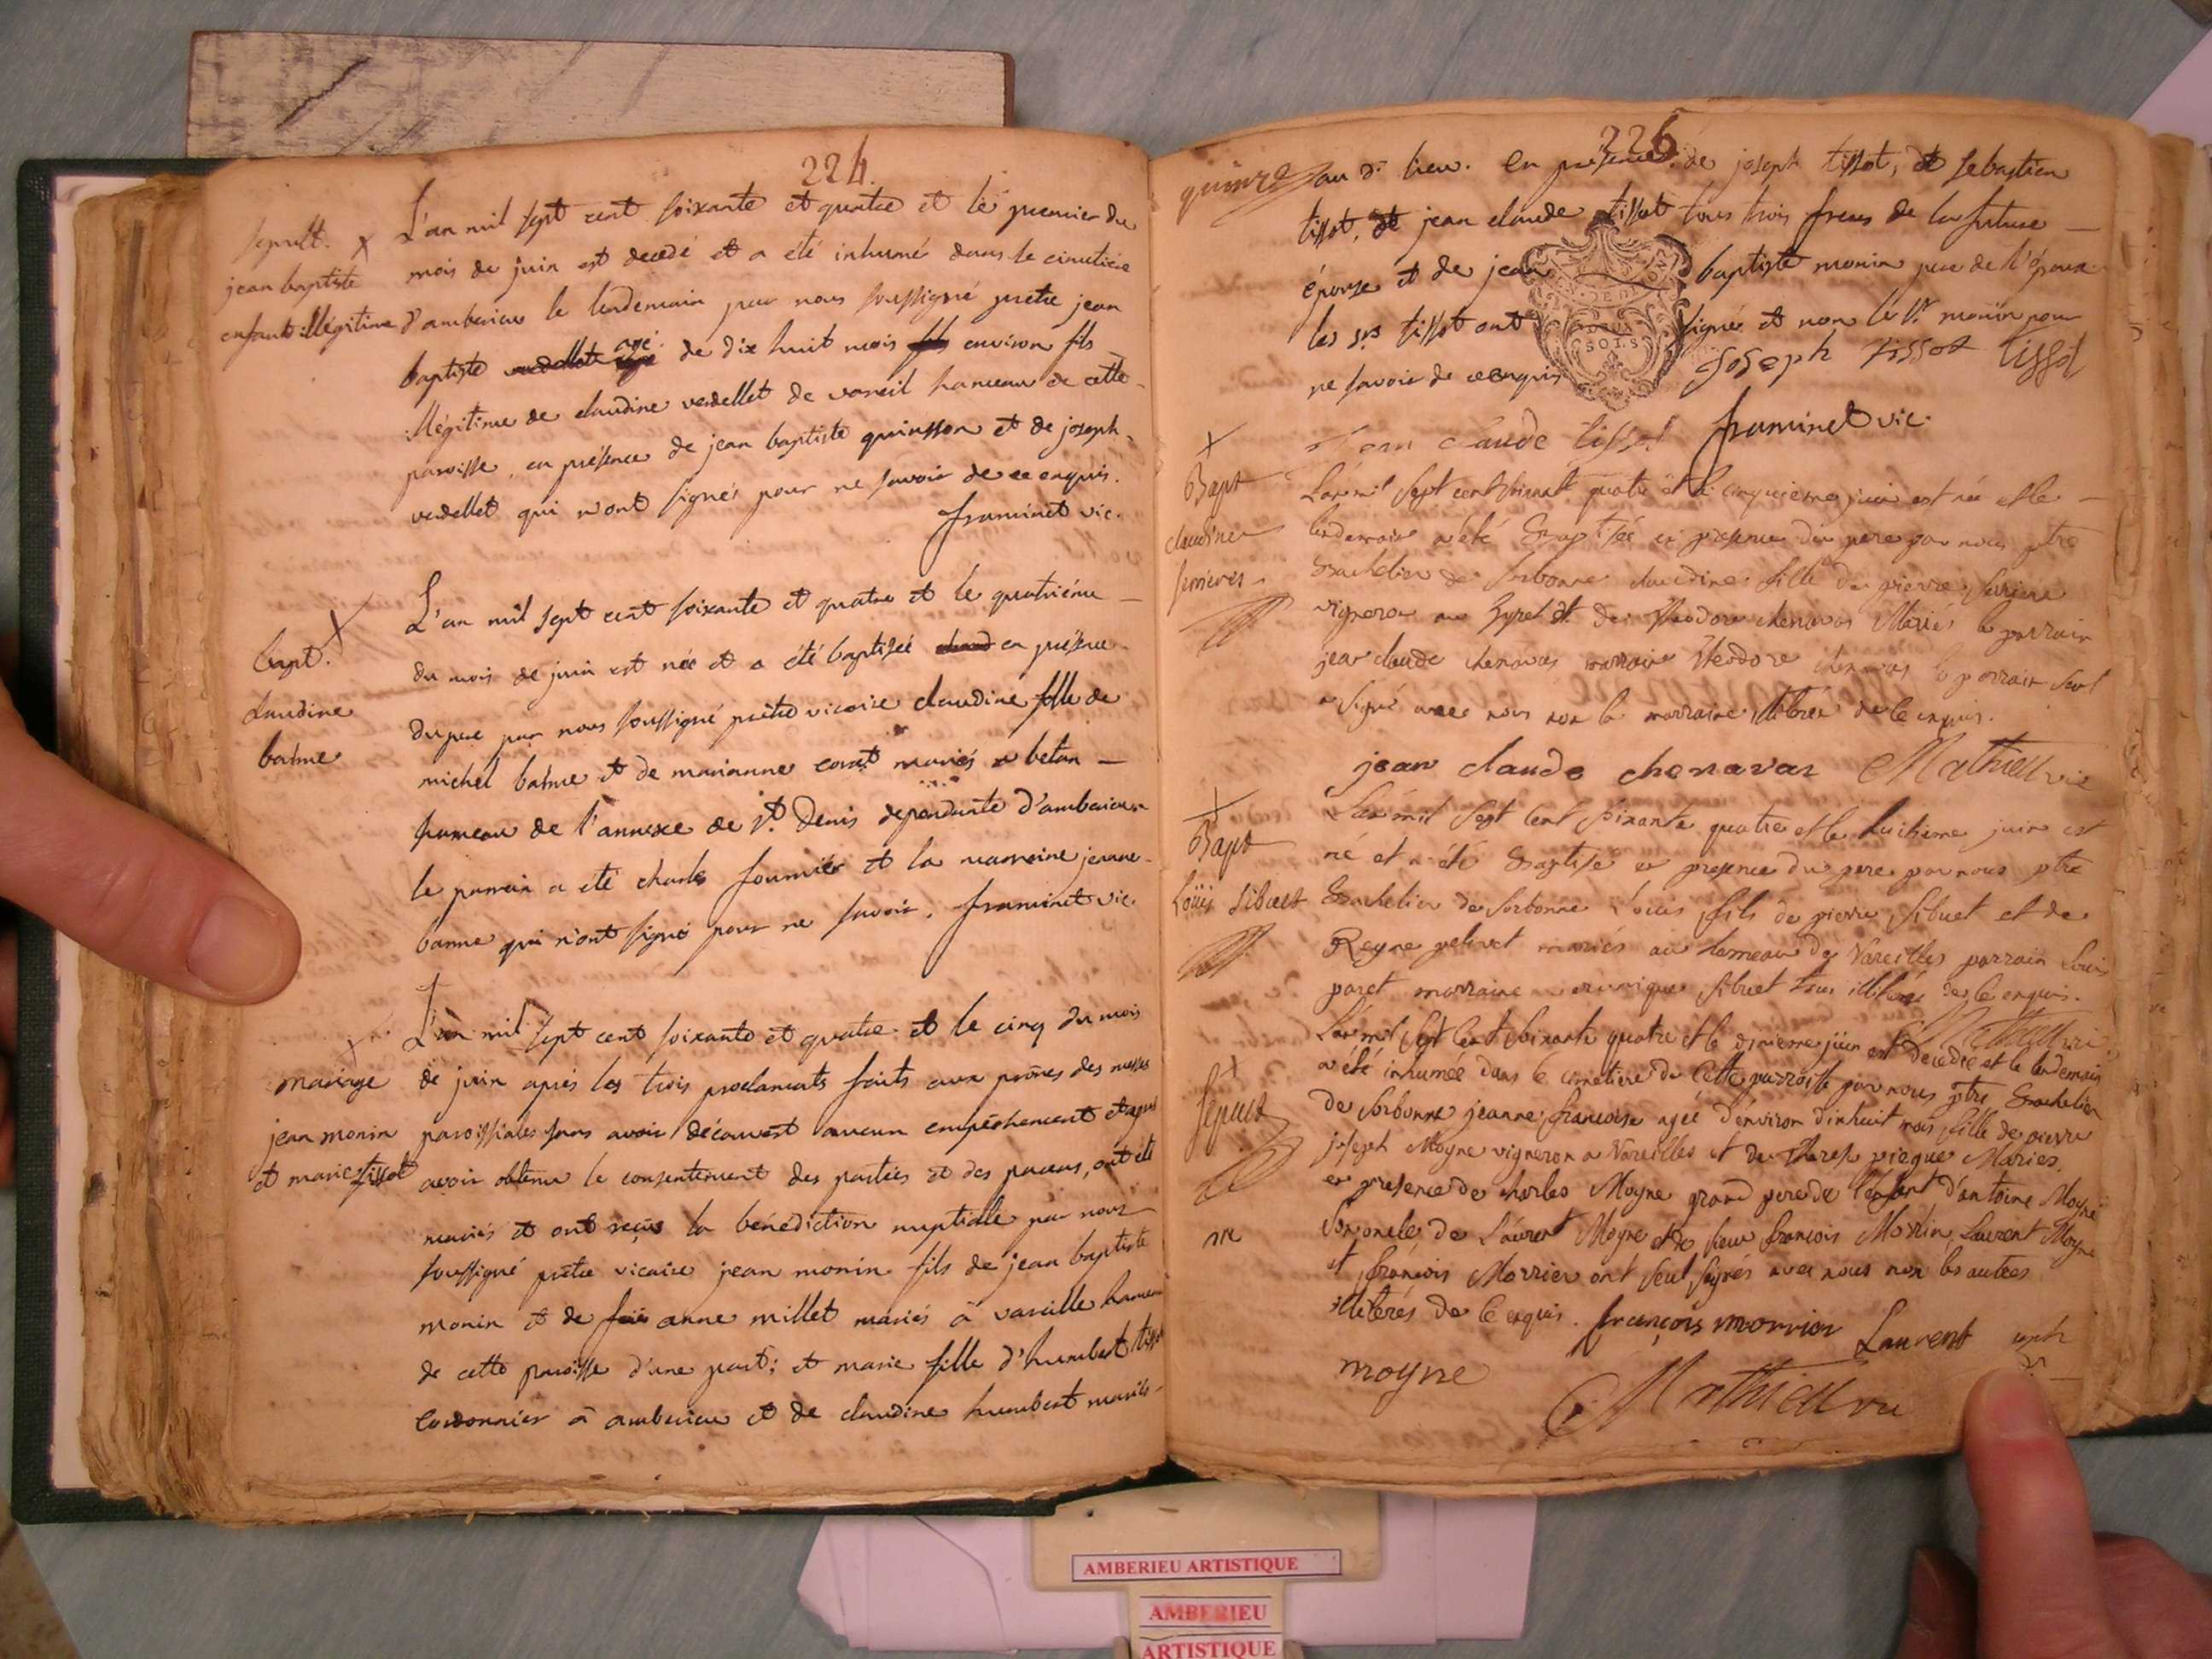 224.
sepult. x
jean baptiste
enfant illégitime
L'an mil sept cent soixante et quatre et le premier du
mois de juin est decedé et a été inhumé dans le cimetiere
d'amberieu le lendemain par nous soussigné pretre jean
baptiste agé de dix huit mois environ fils
illégitime de claudine verdellet de vareil hameau de cette
paroisse, en présence de jean baptiste quinsson et de joseph
verdellet qui n'ont signés pour ne savoir de ce enquis.
framinet vic.
bapt. x
claudine
balme
L'an mil sept cent soixante et quatre et le quatriéme
du mois de juin est née et a été baptisée en présence
du pere par nous soussigné prêtre vicaire claudine fille de
michel balme et de marianne corat mariés a betan
hameau de l'annexe de st. Denis dependante d'amberieu
le parrain a été charles fournier et la marraine jeanne
banne qui n'ont signé pour ne savoir. framinet vic.
x
mariage
jean monin
et marie tissot
L'an mil sept cent soixante et quatre et le cinq du mois
de juin aprés les trois proclamats faits aux prônes des messes
paroissiales sans avoir découvert aucun empêchement et aprés
avoir obtenu le consentement des parties et des parens, ont été
mariés et ont reçus la bénédiction nuptialle par nous
soussigné prêtre vicaire jean monin fils de jean baptiste
monin et de anne millet mariés à vareille hameau
de cette paroisse d'une part; et marie fille d'humbert tissot
cordonnier à amberieu et de claudine humbert mariés
226
quinze au dt. lieu. en présence de joseph tissot, et sebastien
tissot, et jean claude tissot tous trois freres de la future
épouse et de jean baptiste monin pere de l'époux
les srs tissot ont signé et non le sr. monin pour
ne savoir de ce enquis joseph tissot tissot
jean claude tissot framinet vic.
x
Bapt
claudine
L'an mil sept cent soixante quatre et le cinquieme juin est née et le
lendemain a été Baptisée en presence du pere par nous ptre
Bachelier de sorbonne claudine fille de pierre
vigneron au et de Theodore chenavas Mariés le parrain
jean claude chenavas marraine theodore chenavas le parrain seul
a signé avec nous non la marraine illitérée de ce enquis.
jean claude chenavas Mathieu vic
x
Bapt
Loüis sibuet
L'an mil sept cent soixante quatre et le huitieme juin est
né et a été Baptisé en presence du pere par nous ptre
Bachelier de sorbonne Loüis fils de pierre sibuet et de
Reyne mariés au hameau de Vareilles parrain Louis
paret marraine sibuet tous illitérés de ce enquis.
Mathieu vic
x
sepult
L'an mil sept cent soixante quatre et le dixieme juin est decedée et le lendemain
a été inhumée dans le cimetiere de cette parroisse par nous ptre Bachelier
de sorbonne jeanne francoise agée d'environ dixhuit mois fille de pierre
joseph Moyne vigneron a Vareilles et de Therese Mariés.
en presence de charles Moyne grand pere de l'enfant d'antoine Moyne
son oncle, de Laurent Moyne et de sieur francois Morrier, Laurent Moyne
et françois Morrier ont seul signés avec nous non les autres
illiterés de ce enquis. françois morrier Laurent
moyne
Mathieu vic
AMBERIEU ARTISTIQUE
AMBERIEU
ARTISTIQUE